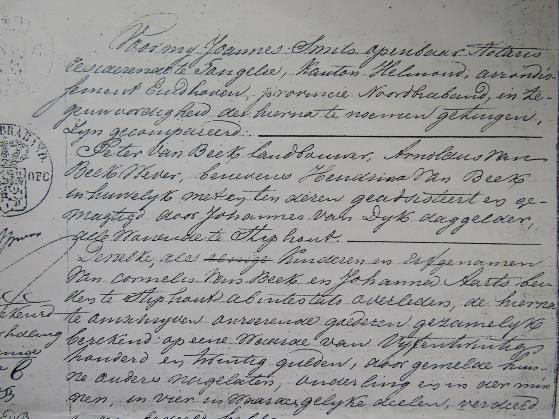 Voor my Joannes Smits openbaar Notaris
resideerende te Tongelre, Kanton Helmond, arrondis
sement Eindhoven, provincie Noordbraband, in te-
genwoordigheid der hierna te noemen getuigen,
zyn gecompareerd.
Peter van Beek landbouwer, Arnoldus van
Beek Wever, benevens Hendrina van Beek
in huwelyk met en ten deren geadsisteert en ge-
magtigd door Johannes van Dyk daggelder,
alle wonende te Stiphout.
Dezelke, als eenige Kinderen en Erfgenamen
van Cornelis van Beek en Johanna Aarts bei
den te Stiphout abintestato overleden, de hierna
te omschryven onroerende goederen gezamelyk
berekend op eene Waarde van Vyftentwintig
honderd en twintig gulden, door gemelde hun-
ne ouders nagelaten, onderling en in der min
nen, in vier deelen, verdeeld
BRABAND
OPC